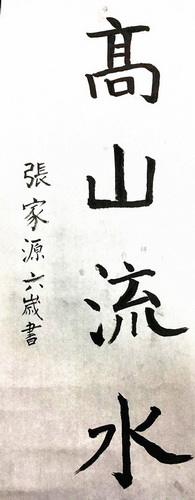 髙山流水
張家源六歲書